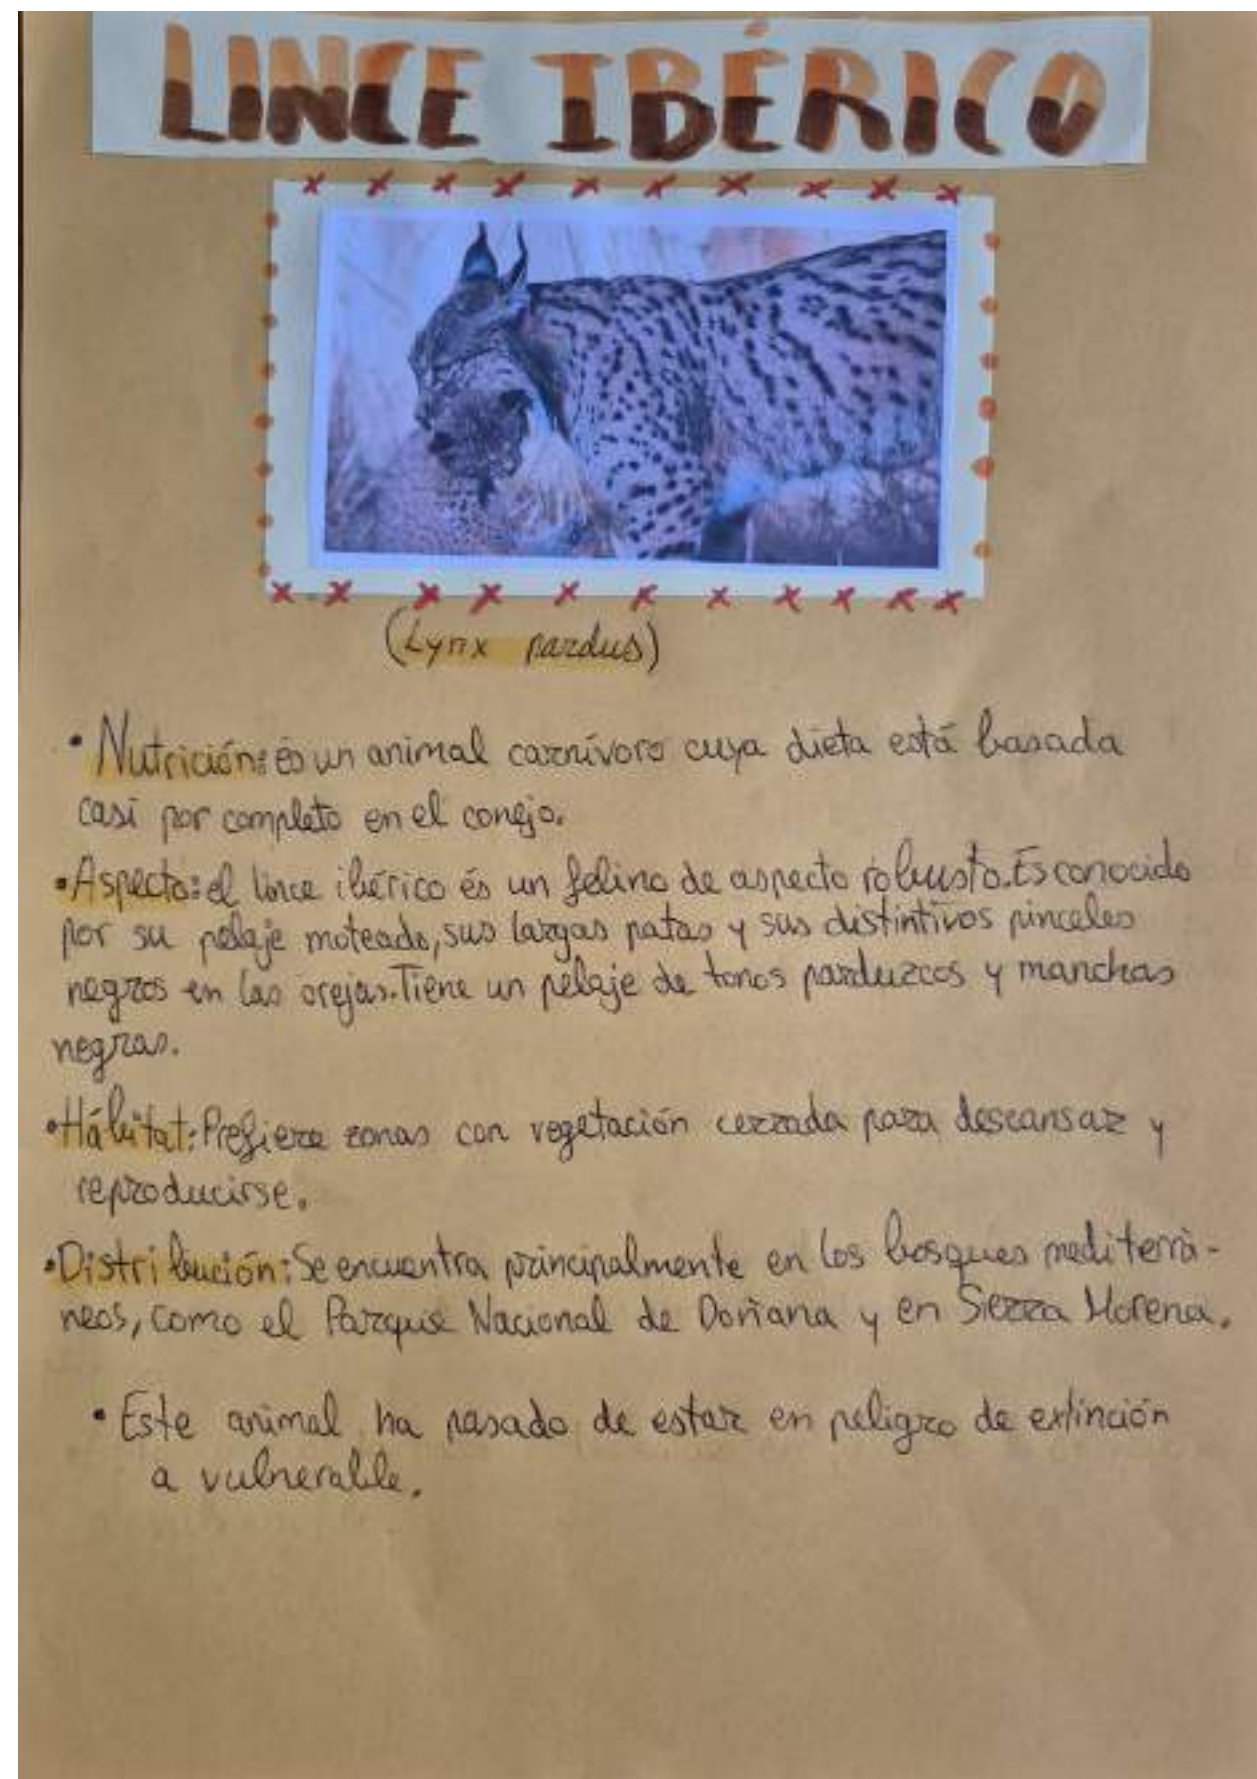 LINCE IBÉRICO
(Lynx pardus)
• Nutrición: és un animal carnívoro cuya dieta está basada
casi por completo en el conejo.
• Aspecto: el lince ibérico és un felino de aspecto robusto. Es conocido
por su pelaje moteado, sus largas patas y sus distintivos pinceles
negros en las orejas. Tiene un pelaje de tonos parduzcos y manchas
negras.
• Hábitat: Prefiere zonas con vegetación cerrada para descansar y
reproducirse.
• Distribución: Se encuentra principalmente en los bosques mediterrá-
neos, como el Parque Nacional de Doñana y en Sierra Morena.
• Este animal ha pasado de estar en peligro de extinción
a vulnerable.